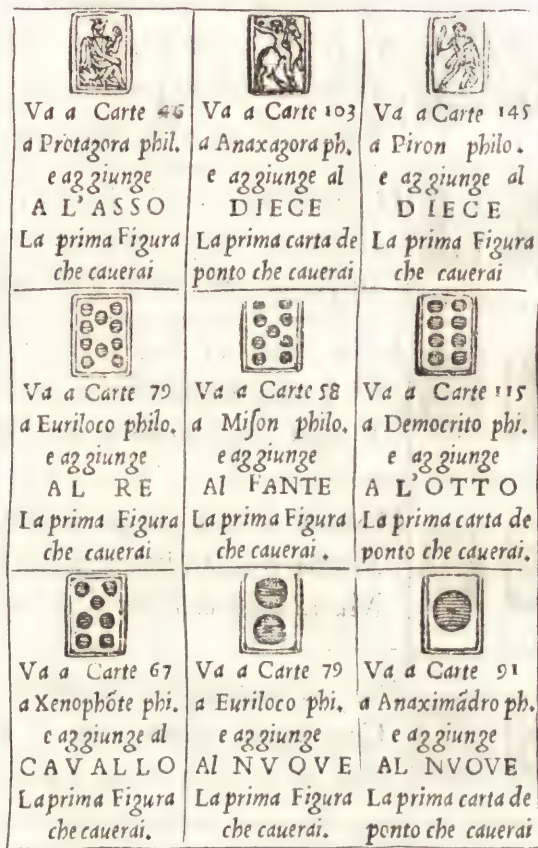 Va a Carte 46
a Protagora phil.
e aggiunge
A L'ASSO
La prima Figura
che cauerai
Va a Carte 103
a Anaxagora ph.
e aggiunge al
DIECE
La prima carta de
ponto che cauerai
Va a Carte 145
a Piron philo.
e aggiunge al
DIECE
La prima Figura
che cauerai
Va a Carte 79
a Euriloco philo.
e aggiunge
AL RE
La prima Figura
che cauerai
Va a Carte 58
a Miſon philo.
e aggiunge
Al FANTE
La prima Figura
che cauerai.
Va a Carte 115
a Democrito phi.
e aggiunge
A L'OTTO
La prima carta de
ponto che cauerai.
Va a Carte 67
a Xenophõte phi.
e aggiunge al
CAVALLO
La prima Figura
che cauerai.
Va a Carte 79
a Euriloco phi.
e aggiunge
Al NVOVE
La prima Figura
che cauerai.
Va a Carte 91
a Anaximãdro ph.
e aggiunge
AL NVOVE
La prima carta de
ponto che cauerai